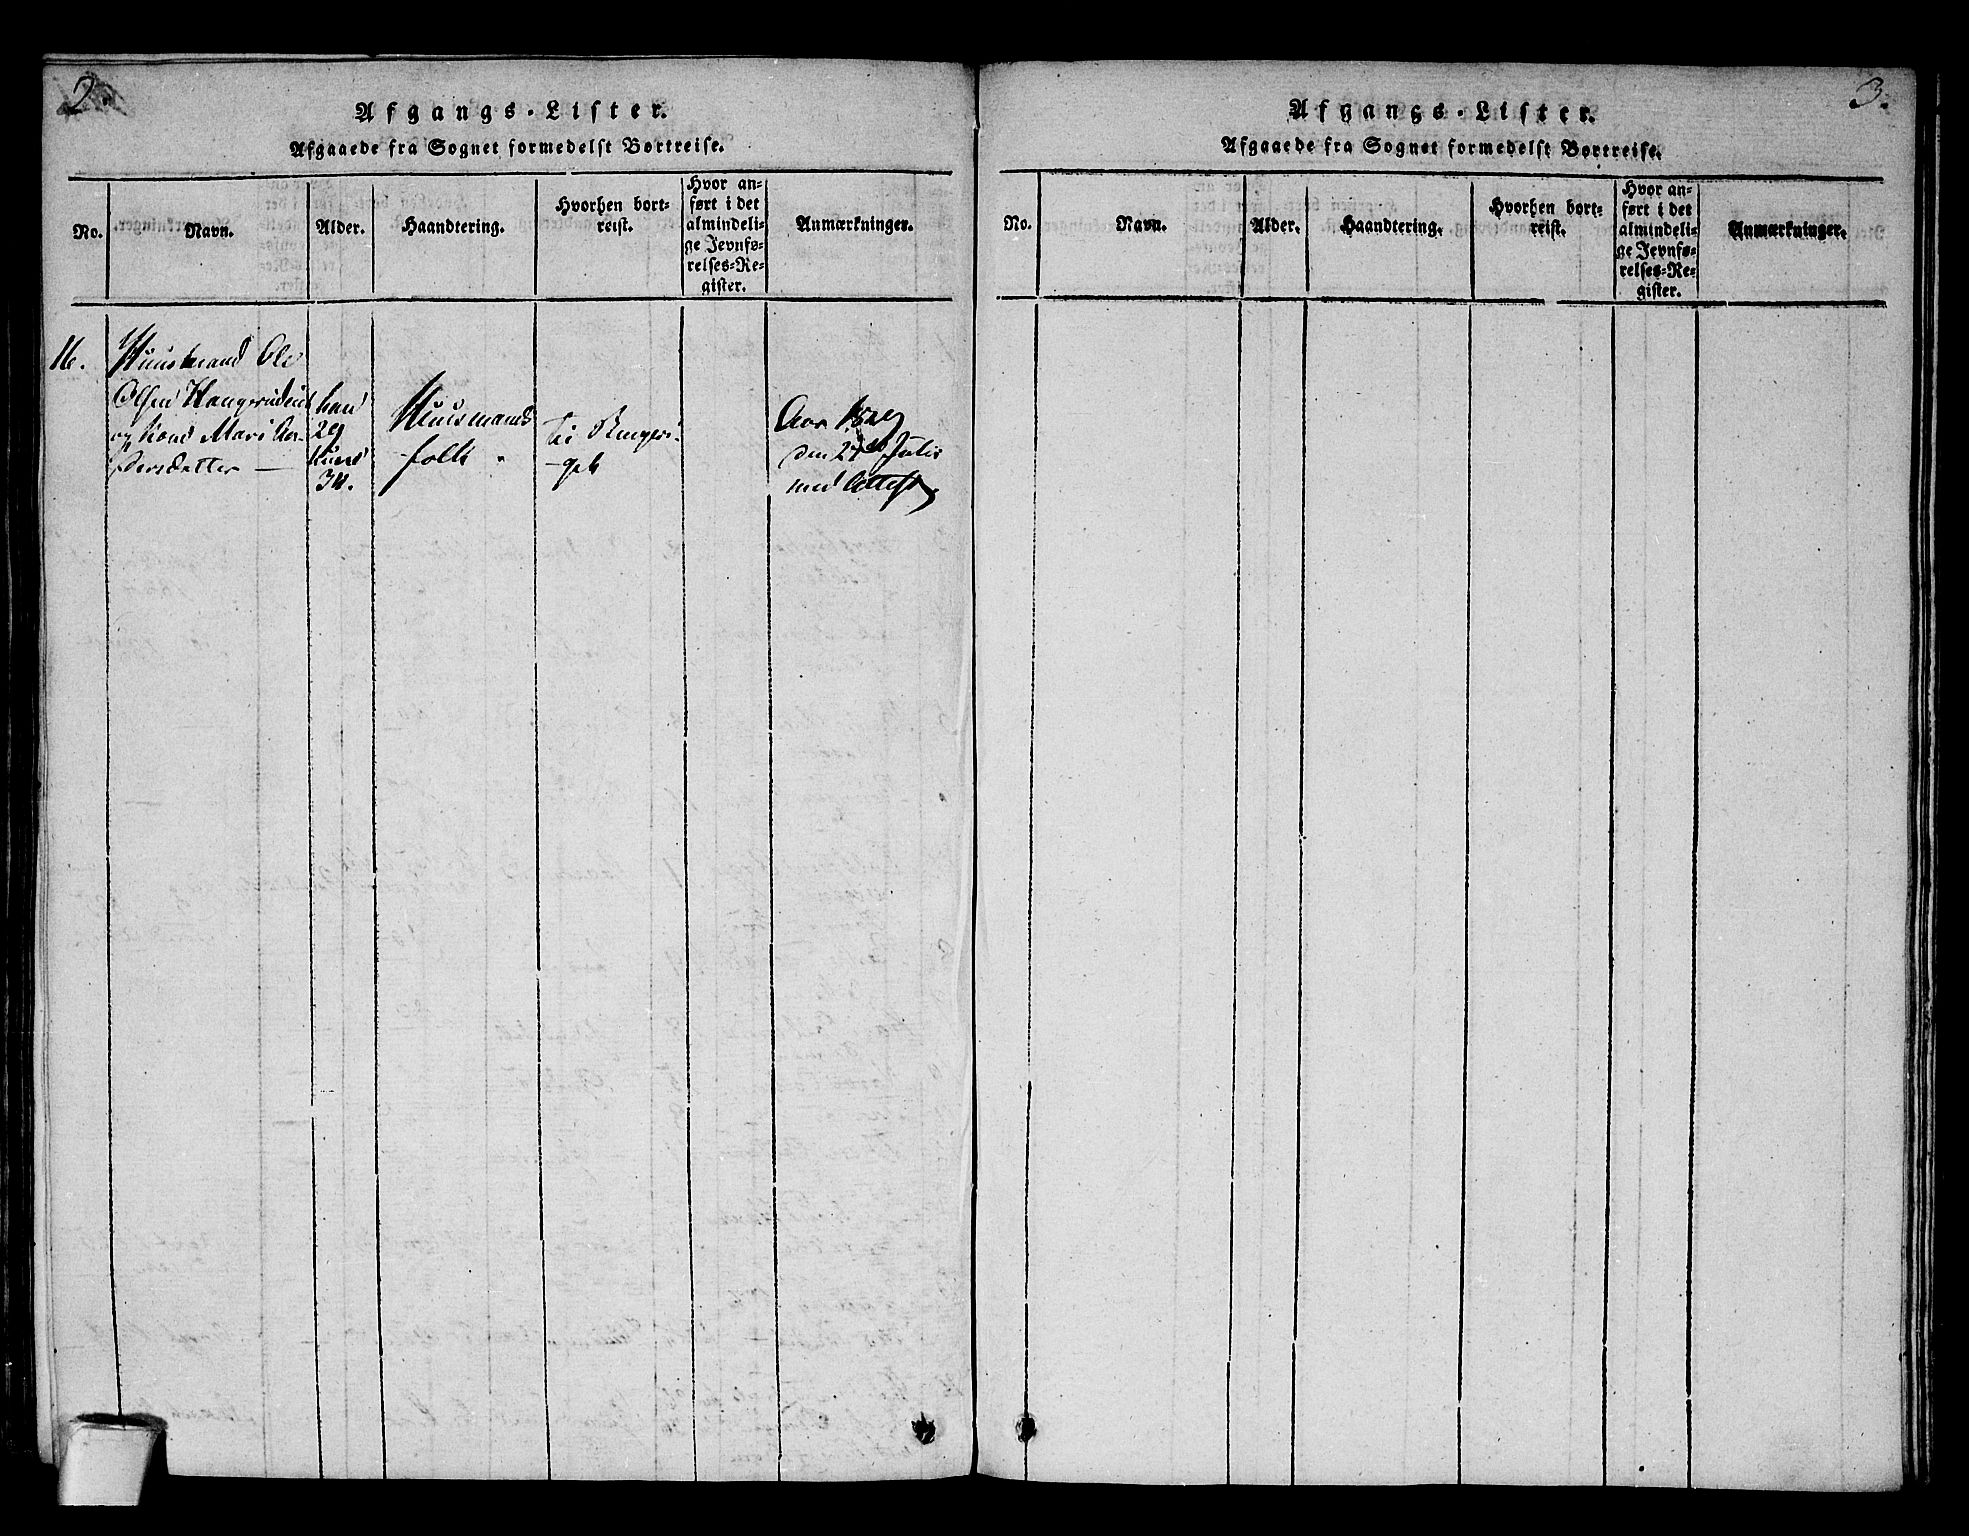 2.
Afgangs-Lister.
Afgaaede fra Sognet formedelst Bortreise.
No.
Navn.
Alder.
Haandtering.
Hvorhen bort-
reist.
Hvor an-
ført i det
almindeli-
ge Jevnfø-
relses-Re-
gister.
Anmærkninger.
16.
Huusmand Ole
Olsen
og Kone Mari An-
dersdatter —
han
29
Kone
34.
Huusmands
folk
til Ringeri-
get
Aar 1829
den 27de Julii
med Attest
3.
Afgangs-Lister.
Afgaaede fra Sognet formedelst Bortreise.
No.
Navn.
Alder.
Haandtering.
Hvorhen bort-
reist.
Hvor an-
ført i det
almindeli-
ge Jevnfø-
relses-Re-
gister.
Anmærkninger.